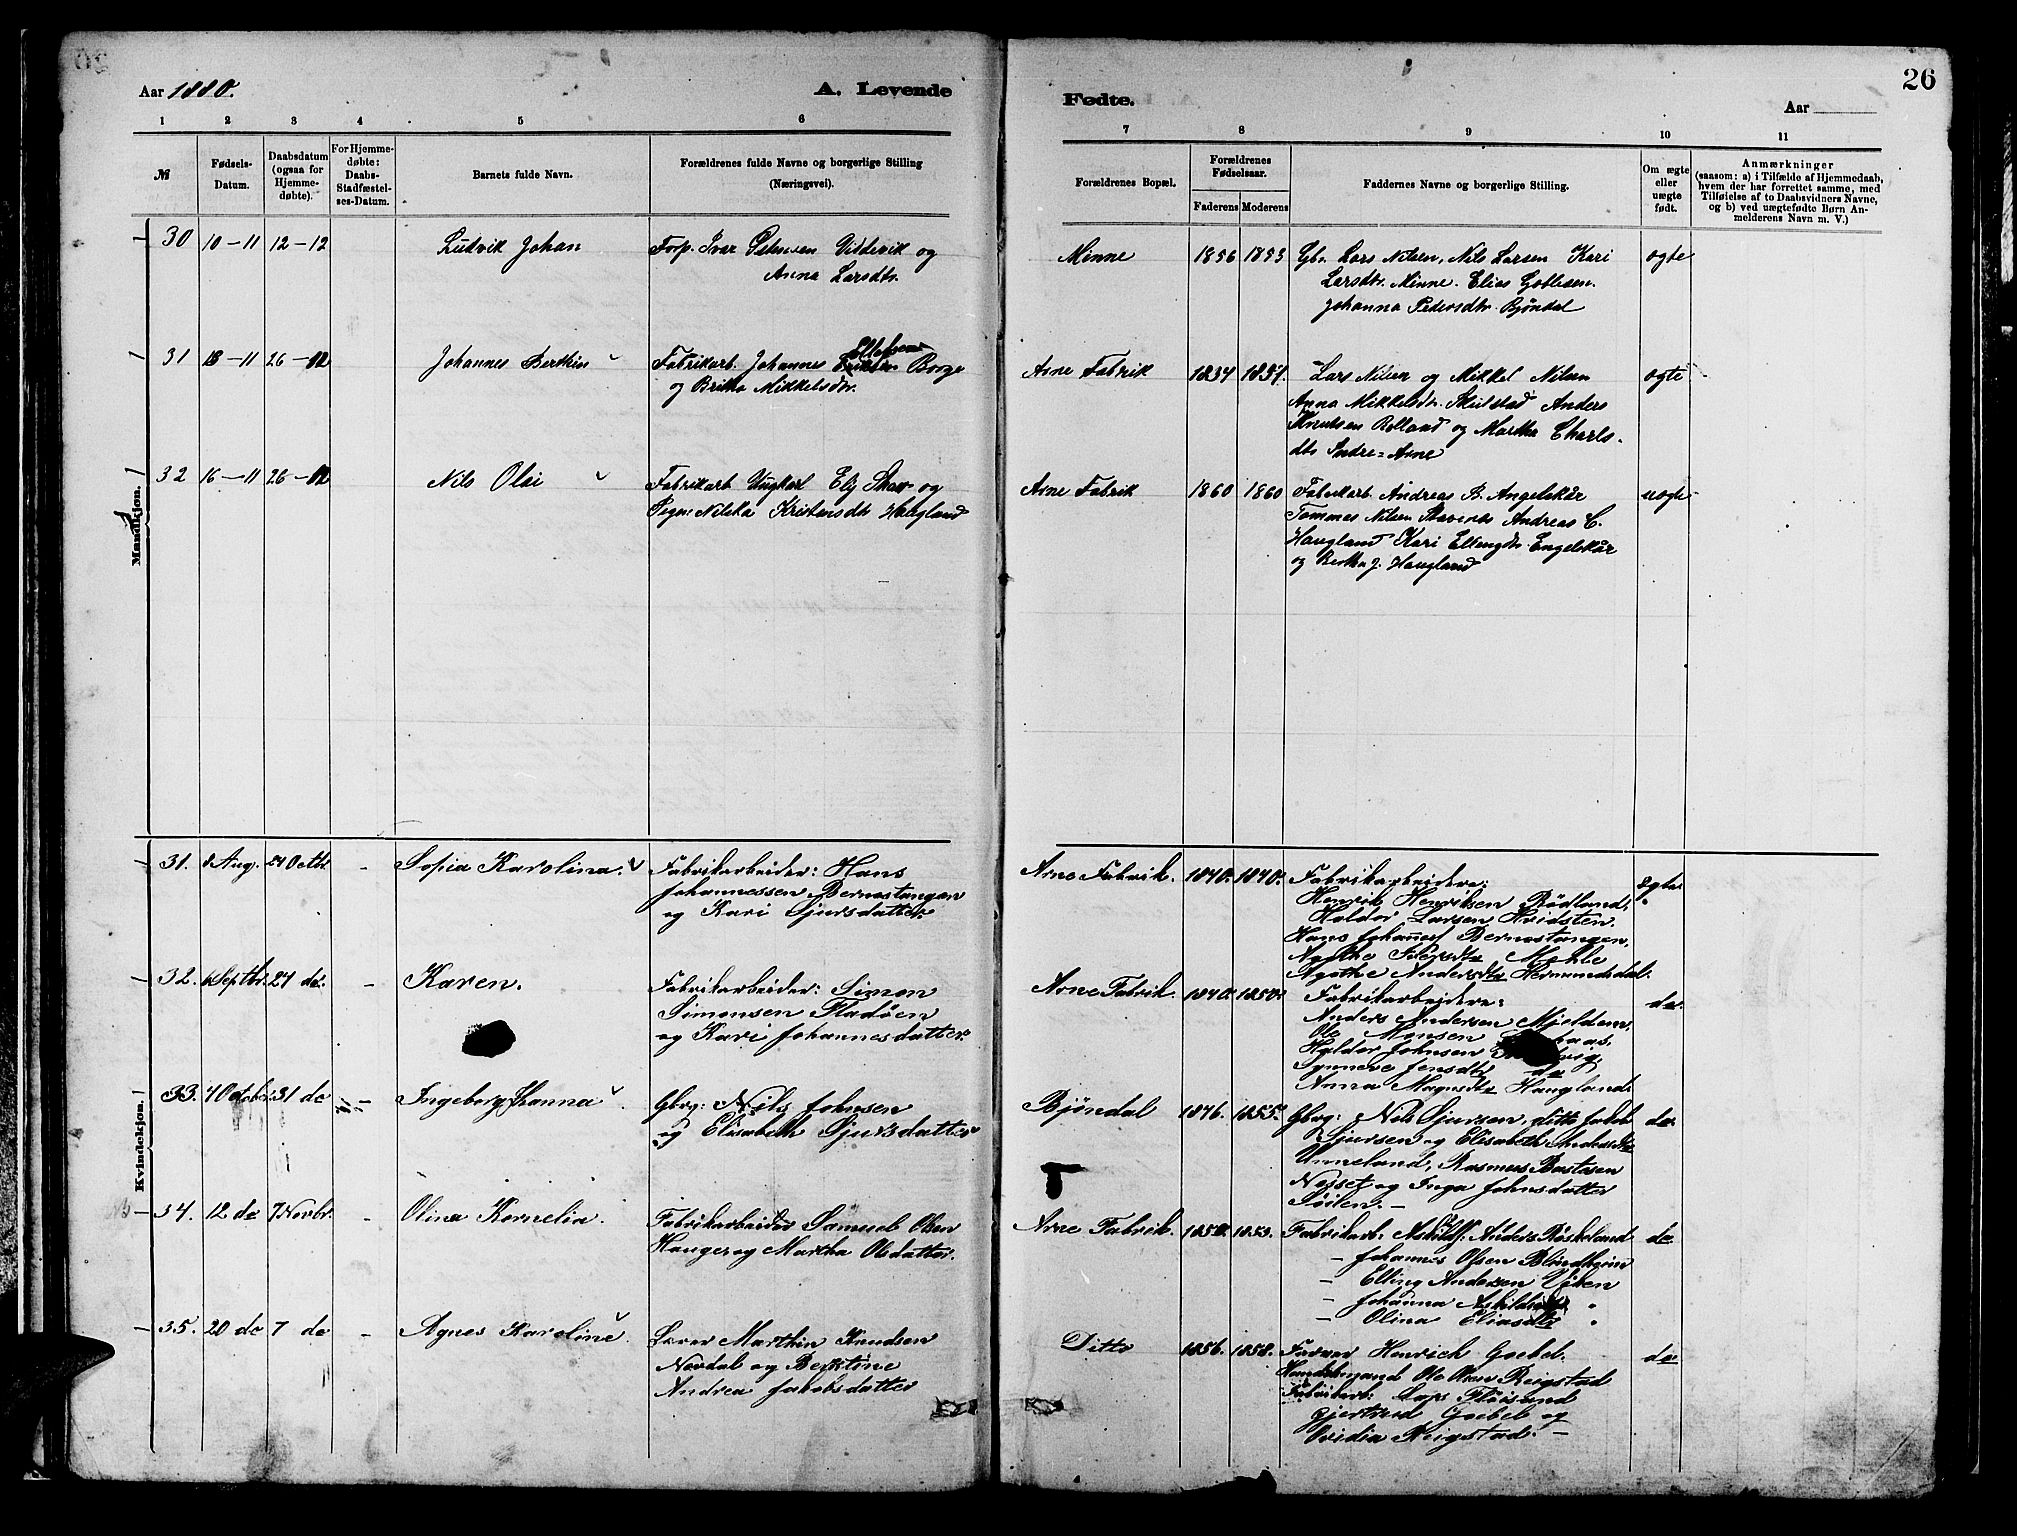 26
Aar 1880.
A. Levende
Fødte.
Aar
1 2 3 4 5 6
7 8 9 10 11
№
Fødsels-
Datum.
Daabsdatum
(ogsaa for
Hjemme-
døbte).
For Hjemme-
døbte:
Daabs-
Stadfæstel-
ses-Datum.
Barnets fulde Navn.
Forældrenes fulde Navne og borgerlige Stilling
(Næringsvei).
Forældrenes Bopæl.
Forældrenes
Fødselsaar.
Faderens Moderens
Faddernes Navne og borgerlige Stilling.
Om ægte
eller
uægte
født.
Anmærkninger
(saasom: a) i Tilfælde af Hjemmedaab,
hvem der har forrettet samme, med
Tilføielse af to Daabsvidners Navne,
og b) ved uægtefødte Børn An-
melderens Navn m. V.)
Mandkjøn.
30 10-11 12-12
Ludvik Johan
Forp. Ivar Petersen Vildevik og
Anna Larsdtr.
Minne
1856 1853
Gbr. Lars Nilsen, Nils Larsen Kari
Larsdtr. Minne. Elias Gotlisen.
Johanna Pedersdtr. Bjøndal
ægte
31 18-11 26-12
Johannes Berthin
Fabrikarb. Johannes Ellefsen Borge
og Brita Mikkelsdtr.
Arne Fabrik
1834 1837.
Lars Nilsen og Mikkel Nilsen
Anna Mikkelsdtr. Skulstad Anders
Knutsen Rolland og Martha Charls-
dtr Indre=Arne
ægte
32 16-11 26-12
Nils Olai
Fabrikarb Ungkarl Elj Skaar og
Pigen Nilska Kristensdtr Haugland
Arne Fabrik
1860 1860
Fabrikarb. Andreas B. Angelskår
Tommas Nilsen Stavenes Andreas C.
Haugland Kari Ellengdtr. Engelskår
og Bertha J. Haugland
uægte
Kvindekjøn.
31. 8 Aug. 24 Octbr. -
Sofia Karolina.
Fabrikarbeider: Hans
Johannessen Bernestangen
og Kari Sjursdatter
Arne Fabrik.
1840. 1840.
Fabrikarbeidere:
Henrik Henriksen Rødland,
Haldor Larsen Hvidsten.
Hans Johannes Bernestangen,
Agathe Mohle
Agathe Andersdtr Hermundsdal.
Ægte
32. 6 Septbr. 24 do. -
Karen.
Fabrikarbeider: Simon
Simonsen Fladøen
og Kari Johannesdatter.
Arne Fabrik.
1840. 1850.
Fabrikarbeidere:
Anders Andersen Mjeldem,
Ole Monsen
Haldor Johnsen
Synneve Jensdtr do
Anna Magnsdtr Haugland.
do.
33. 4 October 31 do -
Ingeborg Hanna
Gbrg: Nils Johnsen
og Elisabeth Sjursdatter
Bjøndal
1846. 1855.
Gbrg: Nils Sjursen, ditto Jakob
Sjursen og Elisabeth Andersdtr
Unneland, Rasmus Bastesen
Nesset og Inga Johnsdatter
Søilen. -
do.
34. 12 do 7 Novbr. -
Olina Kornelia.
Fabrikarbeider Samuel Olsen
Hauger og Martha Olsdatter.
Arne Fabrik.
1853.
Fabrikarb: Anders Røskeland
- Johannes Olsen Blindheim
- Elling Andersen Viken
- Johanna Askildsdtr "
- Olina Eliasdtr "
do
35. 20 do 7 do -
Agnes Karoline.
Lærer Marthin Knudsen
Nordal og Bertine
Andrea Jakobsdatter
Ditto
1856. 1858.
Farver Henrich Goebel.
Handelsmand Ole Olsen Reigstad
Fabrikarb: Lars Fløisand
Gjertrud Goebel og
Ovidia Reigstad. -
do